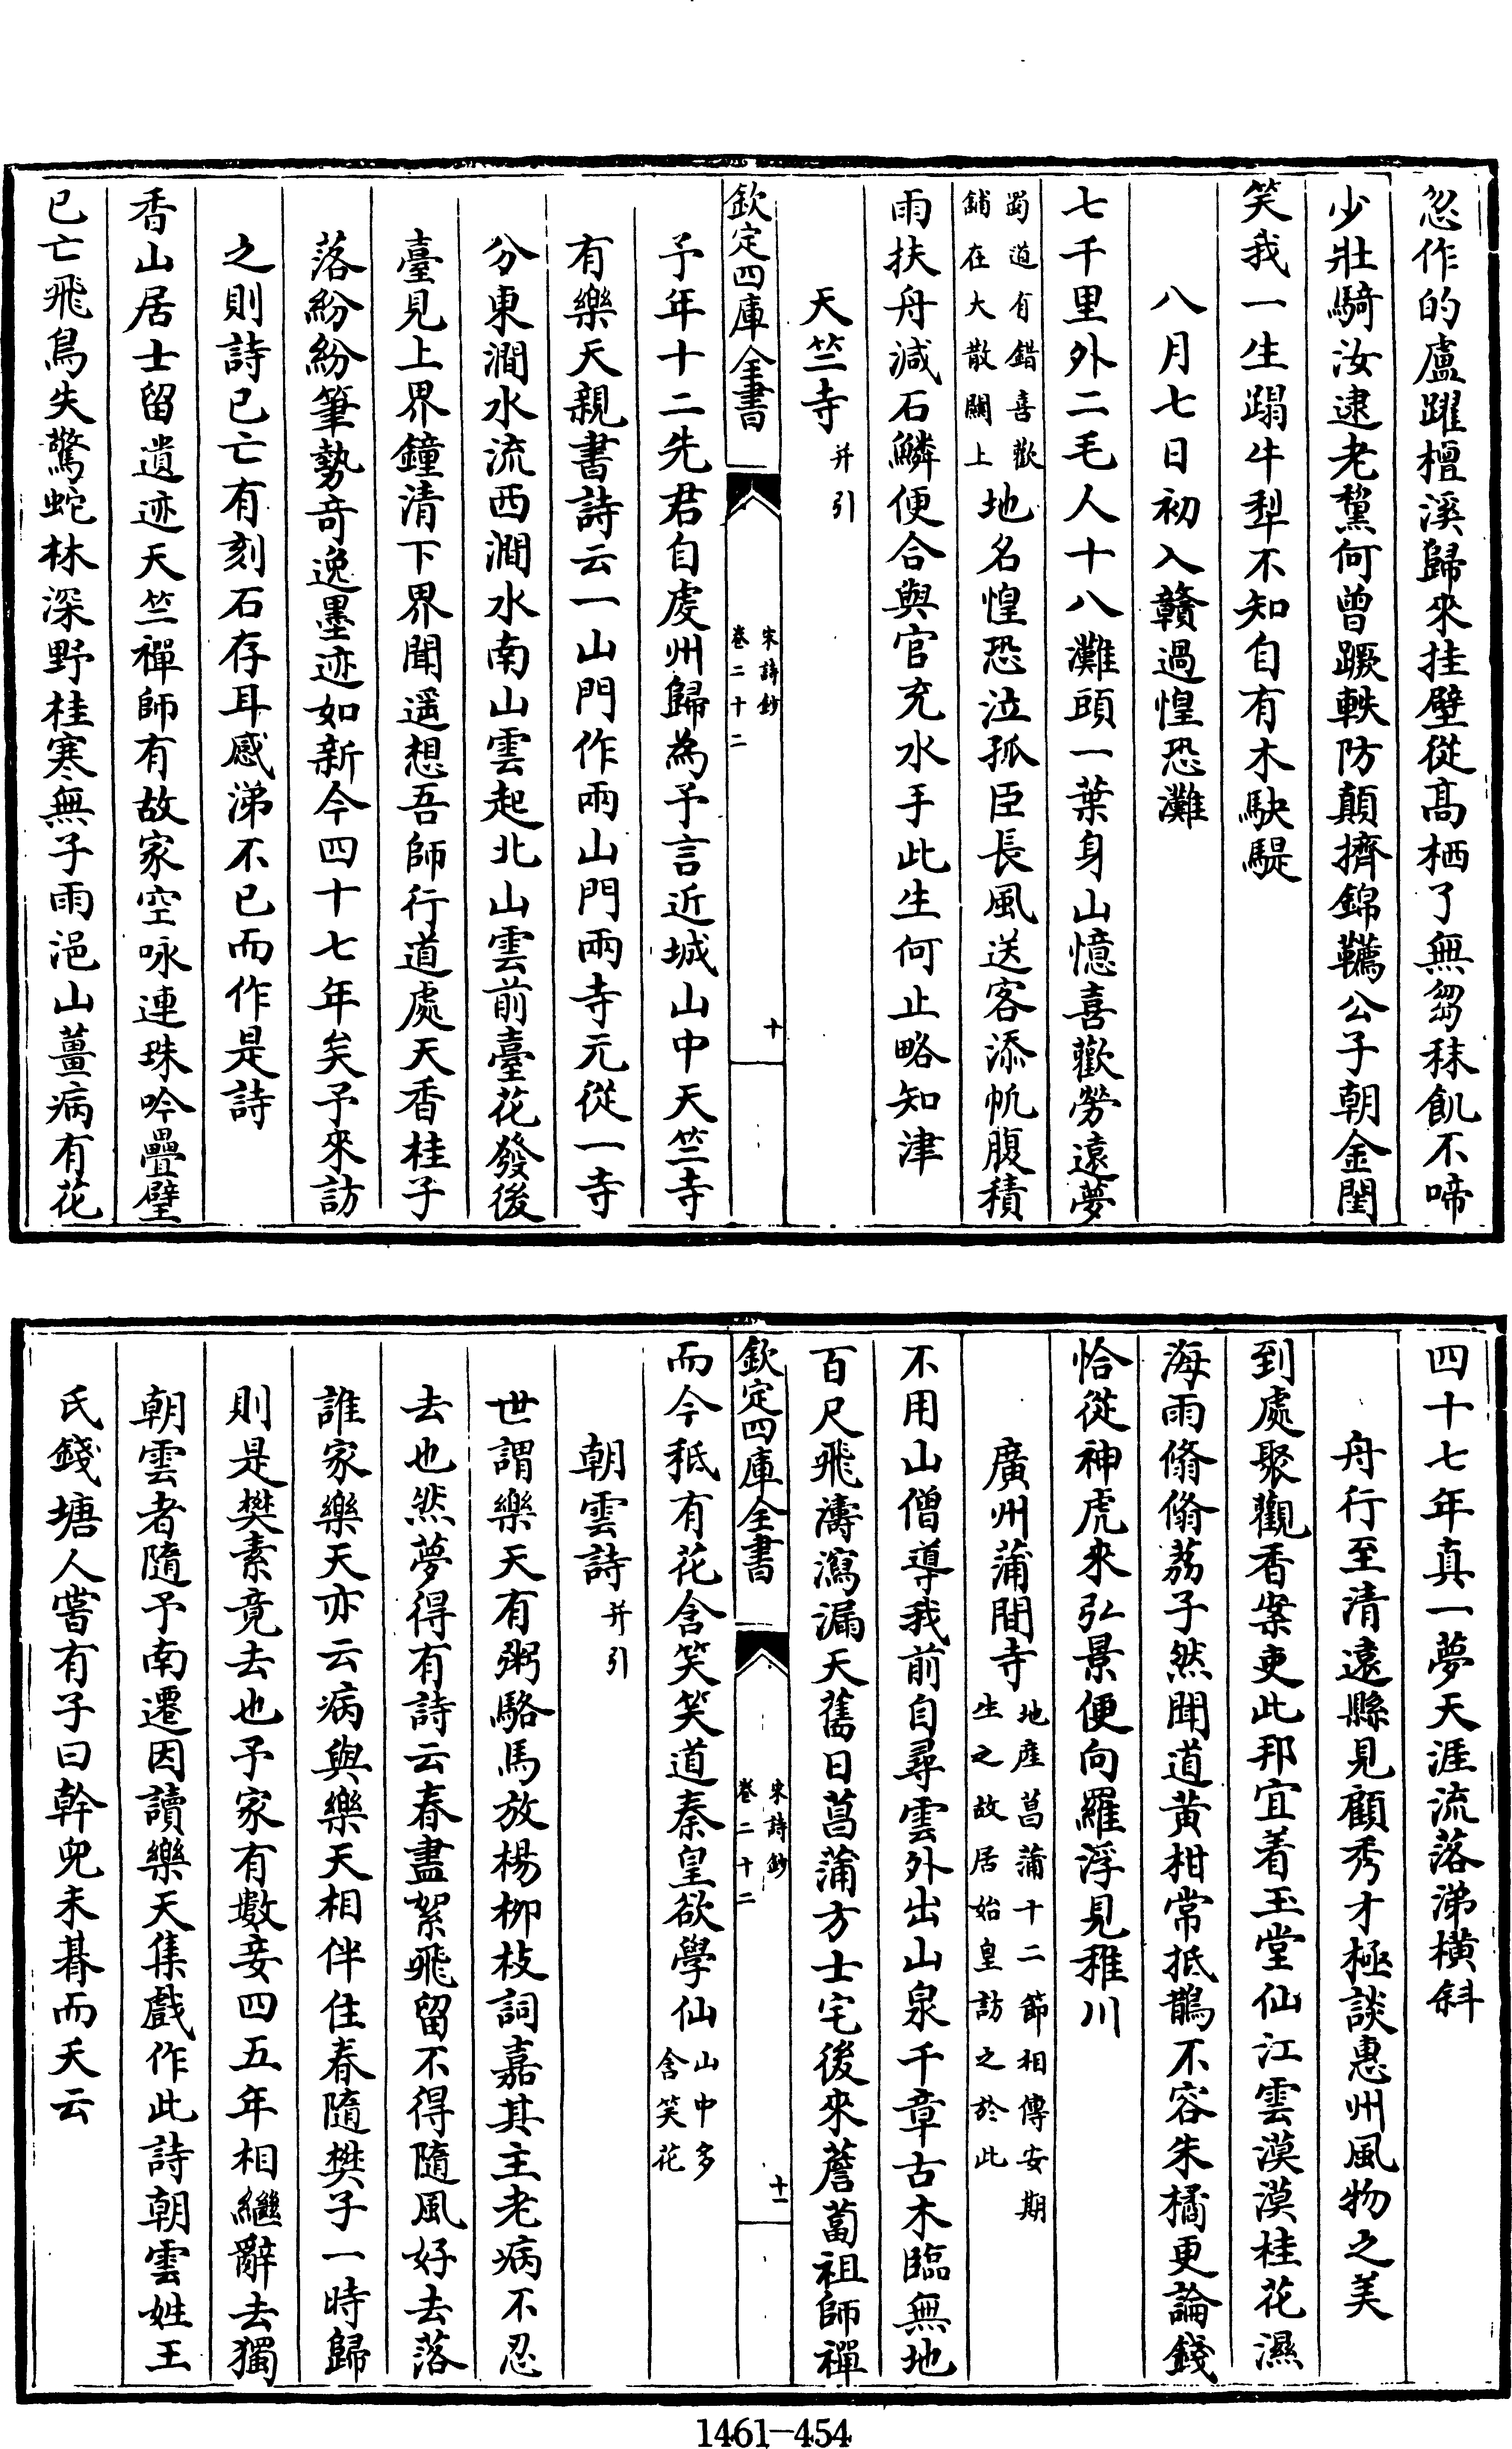 忽作的盧躍檀溪歸來挂壁從高栖了無芻秣飢不啼
少壯騎汝逮老黧何曾蹶軼防顛擠錦韉公子朝金閨
笑我一生蹋牛犁不知自有木駃騠
八月七日初入贛過惶恐灘
七千里外二毛人十八灘頭一葉身山憶喜歡勞遠夢
蜀道有錯喜歡
鋪在大散關上
地名惶恐泣孤臣長風送客添帆腹積
雨扶舟減石鱗便合與官充水手此生何止略知津
天竺寺并引
欽定四庫全書
宋詩鈔
卷二十二
十
予年十二先君自虔州歸為予言近城山中天竺寺
有樂天親書詩云一山門作兩山門兩寺元從一寺
分東澗水流西澗水南山雲起北山雲前臺花發後
臺見上界鐘清下界聞遥想吾師行道處天香桂子
落紛紛筆勢竒逸墨迹如新今四十七年矣予來訪
之則詩已亡有刻石存耳感涕不已而作是詩
香山居士留遺迹天竺禪師有故家空咏連珠吟疊璧
已亡飛鳥失驚蛇林深野桂寒無子雨浥山薑病有花
四十七年真一夢天涯流落涕橫斜
舟行至清遠縣見顧秀才極談惠州風物之美
到處聚觀香案吏此邦宜着玉堂仙江雲漠漠桂花濕
海雨翛翛荔子然聞道黃柑常抵鵲不容朱橘更論錢
恰從神虎來弘景便向羅浮見稚川
廣州蒲間寺
地産菖蒲十二節相傳安期
生之故居始皇訪之於此
不用山僧導我前自尋雲外出山泉千章古木臨無地
百尺飛濤瀉漏天舊日菖蒲方士宅後來薝蔔祖師禪
欽定四庫全書
宋詩鈔
卷二十二
十一
而今秪有花含笑笑道秦皇欲學仙
山中多
含笑花
朝雲詩并引
世謂樂天有粥駱馬放楊柳枝詞嘉其主老病不忍
去也然夢得有詩云春盡絮飛留不得隨風好去落
誰家樂天亦云病與樂天相伴住春隨樊子一時歸
則是樊素竟去也予家有數妾四五年相繼辭去獨
朝雲者隨予南遷因讀樂天集戲作此詩朝雲姓王
氏錢塘人嘗有子曰幹兒未朞而夭云
1461—454